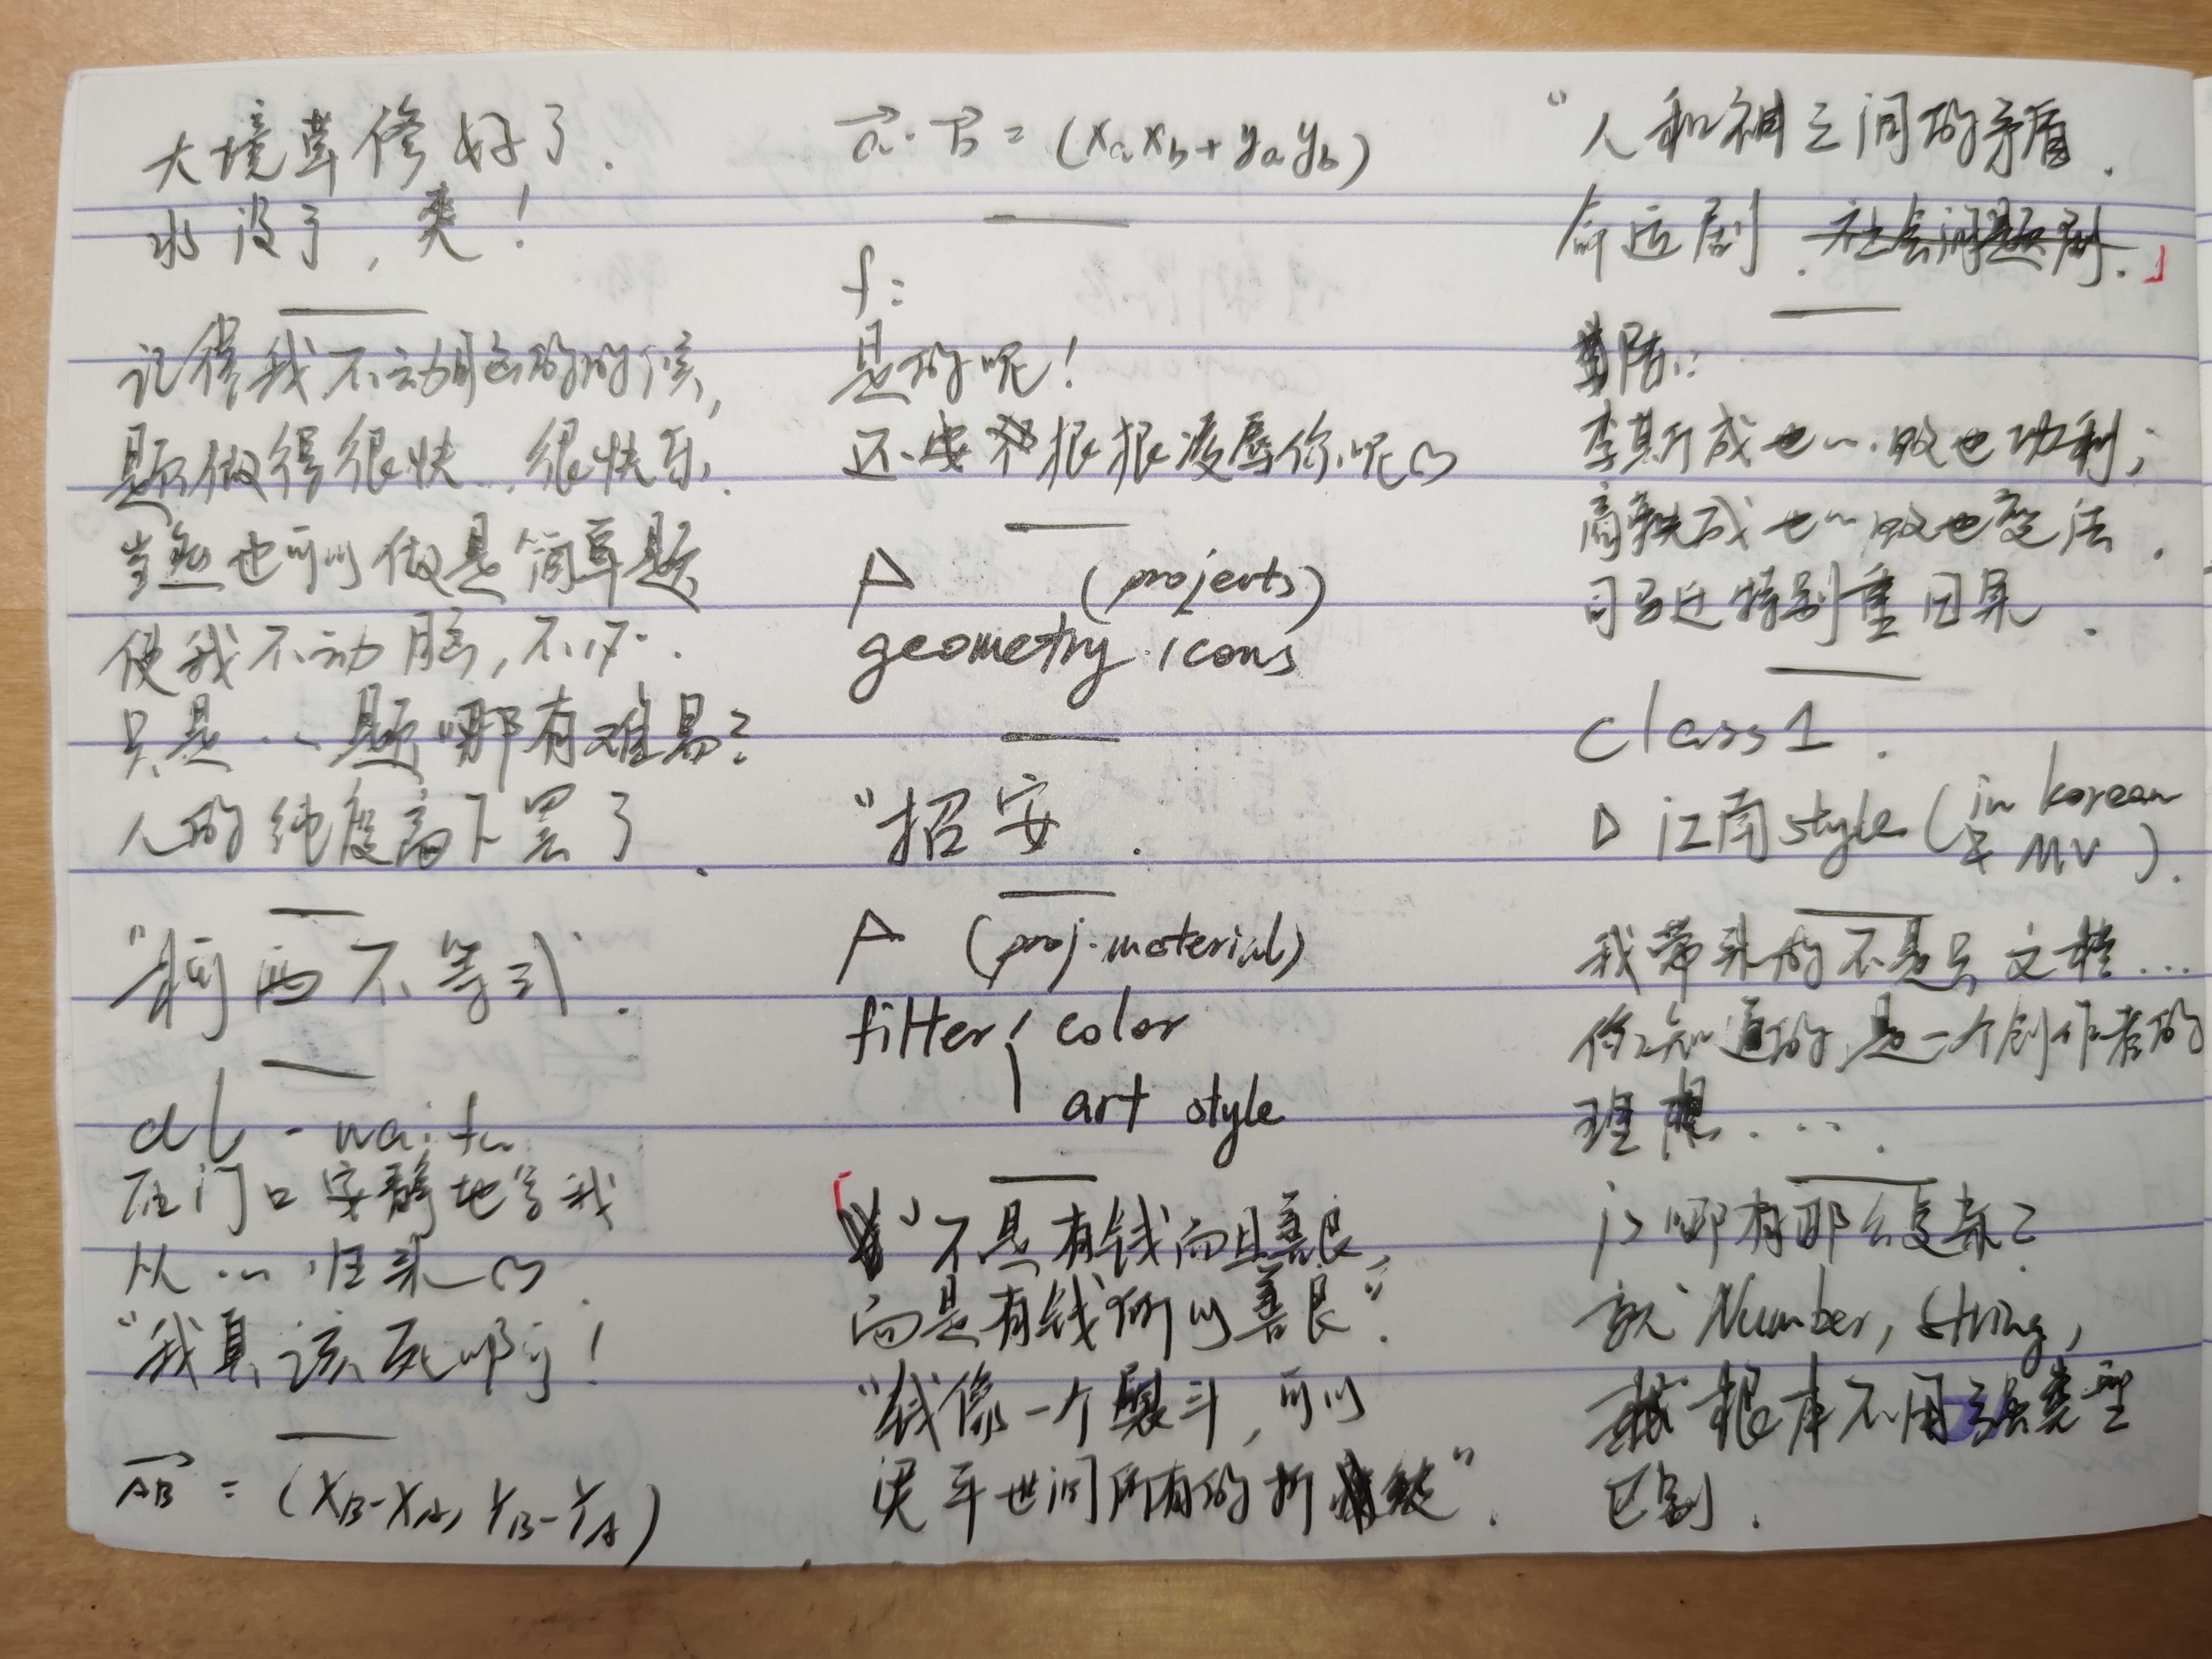 大境草修好了.
水没了,爽!
记得我不动脑的时候,
题做得很快...很快乐.
当然也可以做是简单题
使我不动脑,不以.
只是...题哪有难易?
人的纯度高下罢了.
"柯西不等式".
db - waifu
在门口安静地等我
从...归来
"我真该死啊!
AB = (XB-XA, YB-YA)
a·b = (xaxb+yayb)
f:
是的呢!
还要狠狠凌辱你呢
A (projects)
geometry.icons
"招安.
A (proj.material)
filter color
art style
"不是有钱而且善良,
而是有钱所以善良".
"钱像一个熨斗,可以
烫平世间所有的折皱".
"人和神之间的矛盾.
命运剧.社会问题剧.」
李斯成也~.败也功利;
商鞅成也~败也变法.
司马迁特别重因果.
class1.
D 江南style(in korean
& MV).
我带来的不是只文档...
你知道的,是一个创作者的
理想.....
js哪有那么复杂?
就 Number, String,
我根本不用强类型
区别.